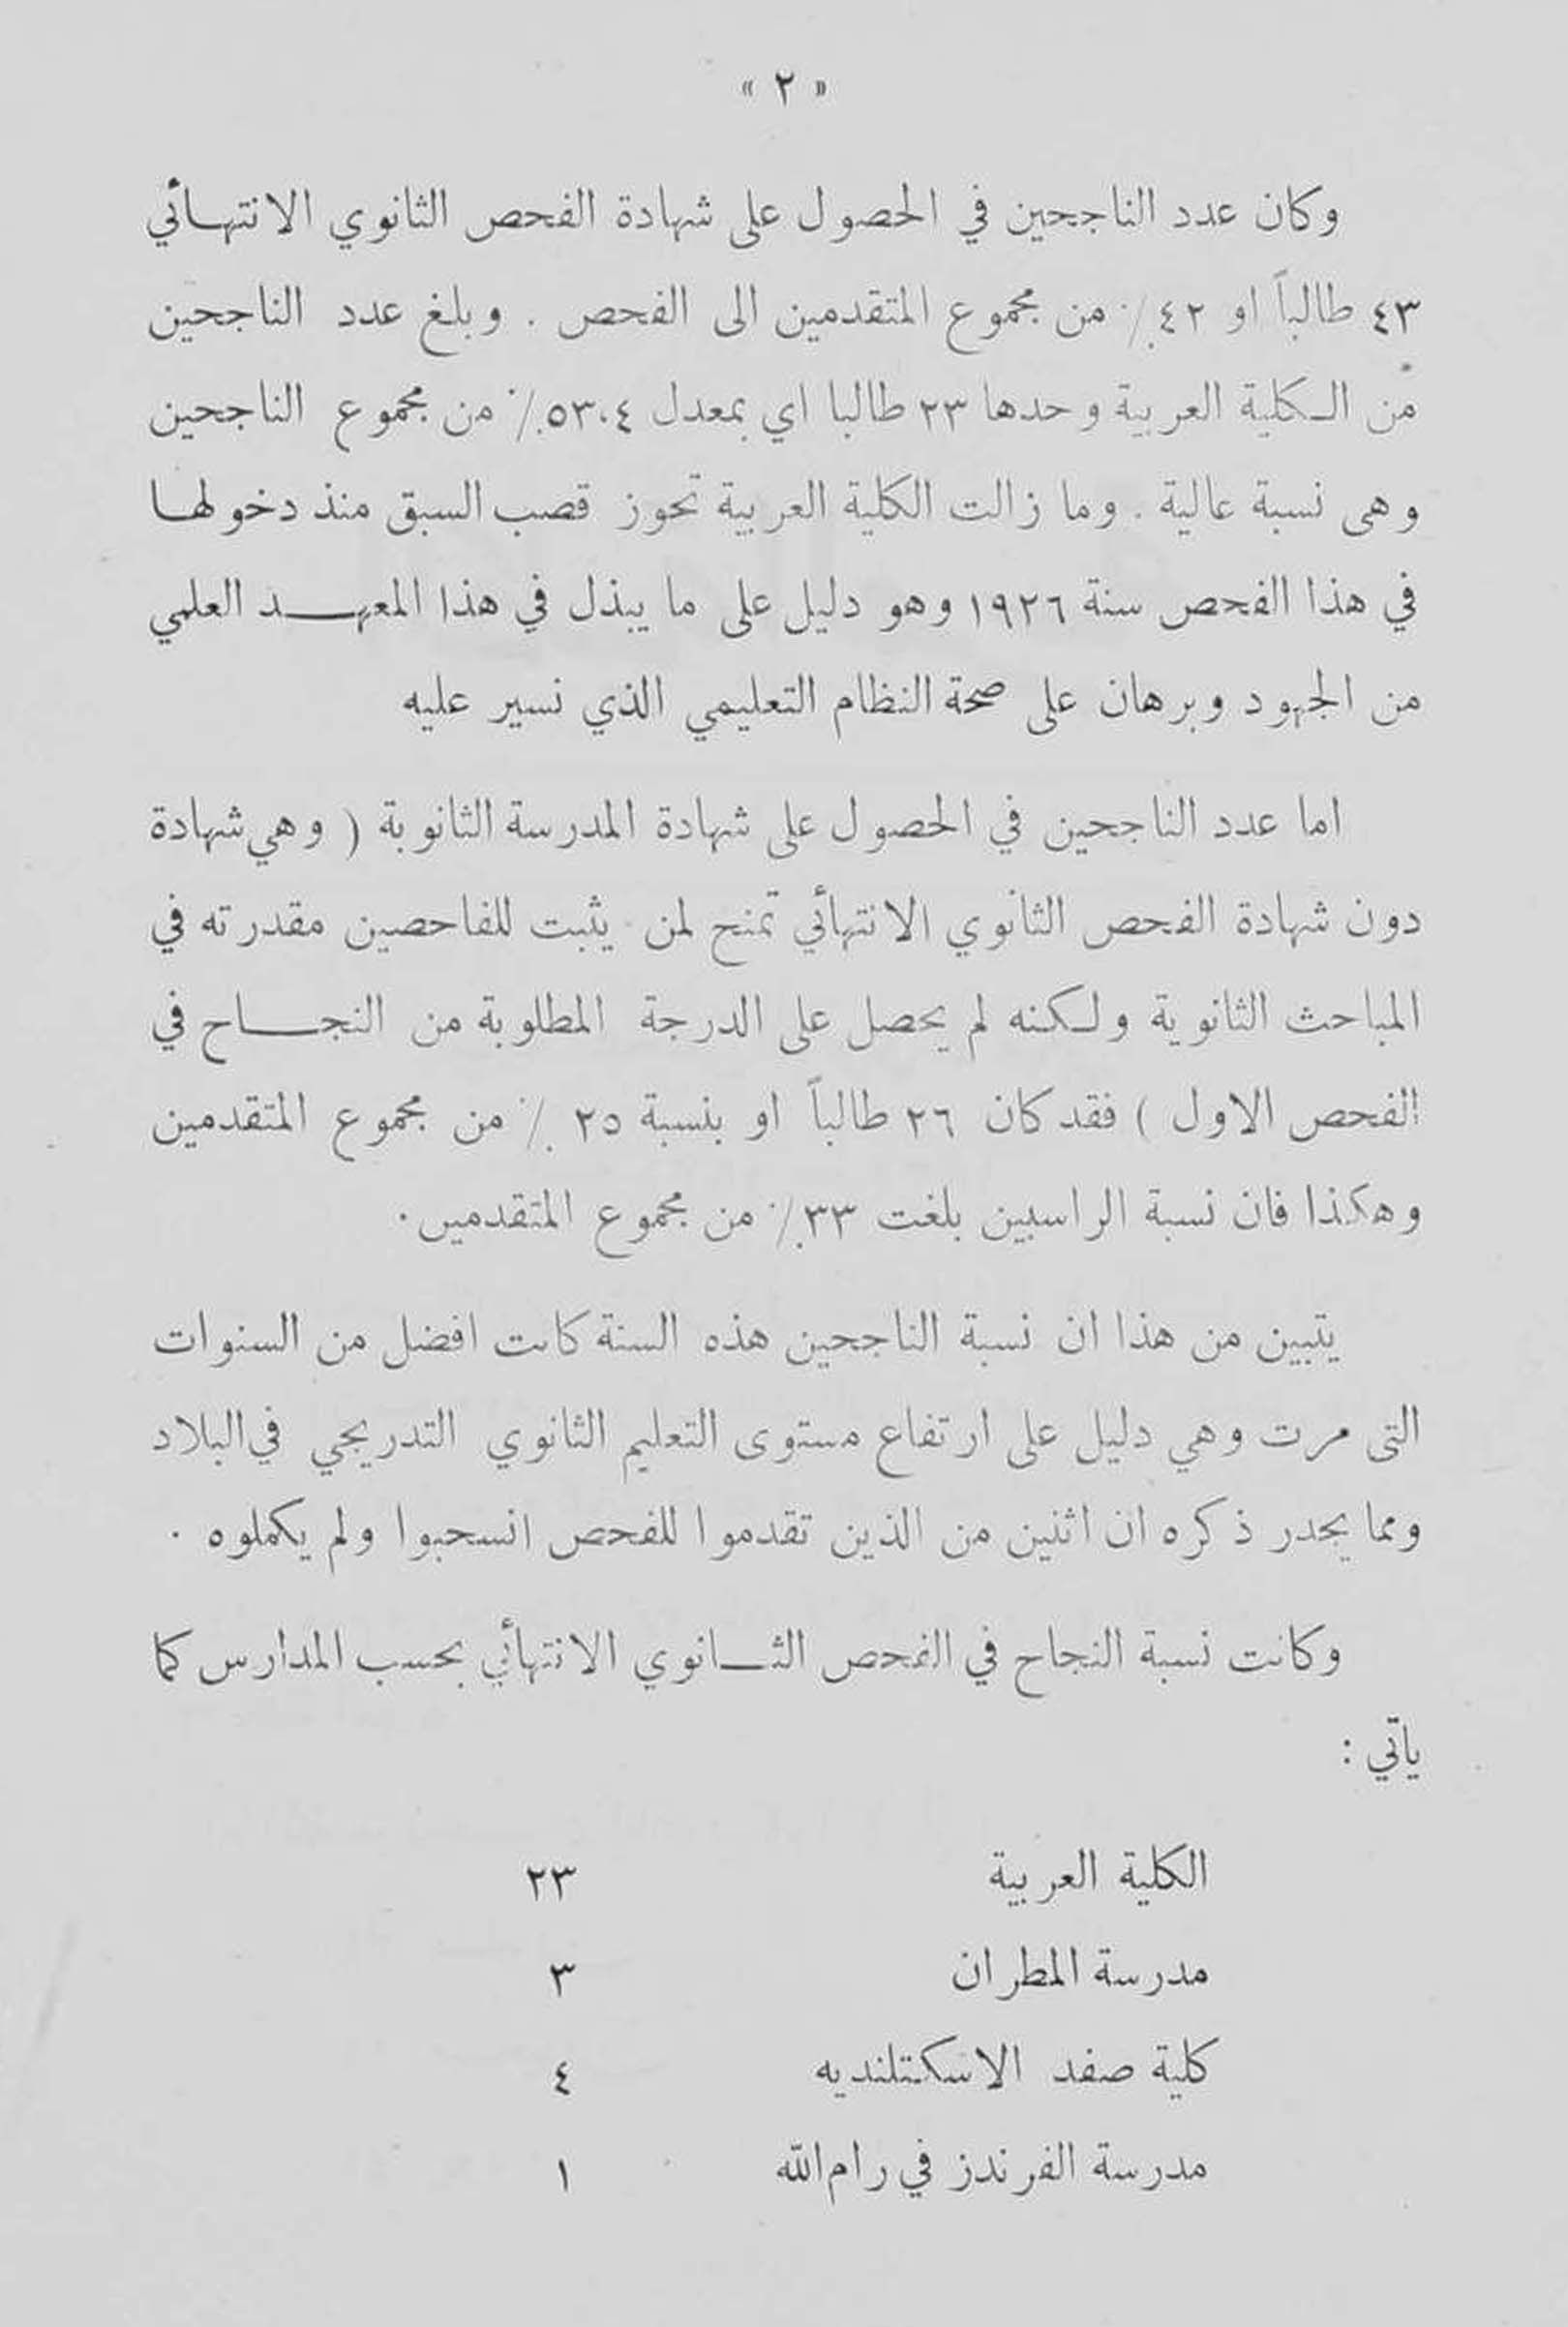 « ٢ »
وكان عدد الناجحين في الحصول على شهادة الفحص الثانوي الانتهائي
٤٣ طالباً او ٤٢٪ من مجموع المتقدمين الى الفحص . وبلغ عدد الناجحين
من الكلية العربية وحدها ٢٣ طالبا اي بمعدل ٥٣،٤٪ من مجموع الناجحين
وهى نسبة عالية . وما زالت الكلية العربية تحوز قصب السبق منذ دخولها
في هذا الفحص سنة ١٩٢٦ وهو دليل على ما يبذل في هذا المعهد العلمي
من الجهود وبرهان على صحة النظام التعليمي الذي نسير عليه
اما عدد الناجحين في الحصول على شهادة المدرسة الثانوية ( وهي شهادة
دون شهادة الفحص الثانوي الانتهائي تمنح لمن يثبت للفاحصين مقدرته في
المباحث الثانوية ولكنه لم يحصل على الدرجة المطلوبة من النجاح في
الفحص الاول ) فقد كان ٢٦ طالباً او بنسبة ٢٥ ٪ من مجموع المتقدمين
وهكذا فان نسبة الراسبين بلغت ٣٣٪ من مجموع المتقدمين .
يتبين من هذا ان نسبة الناجحين هذه السنة كانت افضل من السنوات
التى مرت وهي دليل على ارتفاع مستوى التعليم الثانوي التدريجي في البلاد
ومما يجدر ذكره ان اثنين من الذين تقدموا للفحص انسحبوا ولم يكملوه .
وكانت نسبة النجاح في الفحص الثانوي الانتهائي بحسب المدارس كما
ياتي :
الكلية العربية ٢٣
مدرسة المطران ٣
كلية صفد الاسكتلنديه ٤
مدرسة الفرندز في رام الله ١